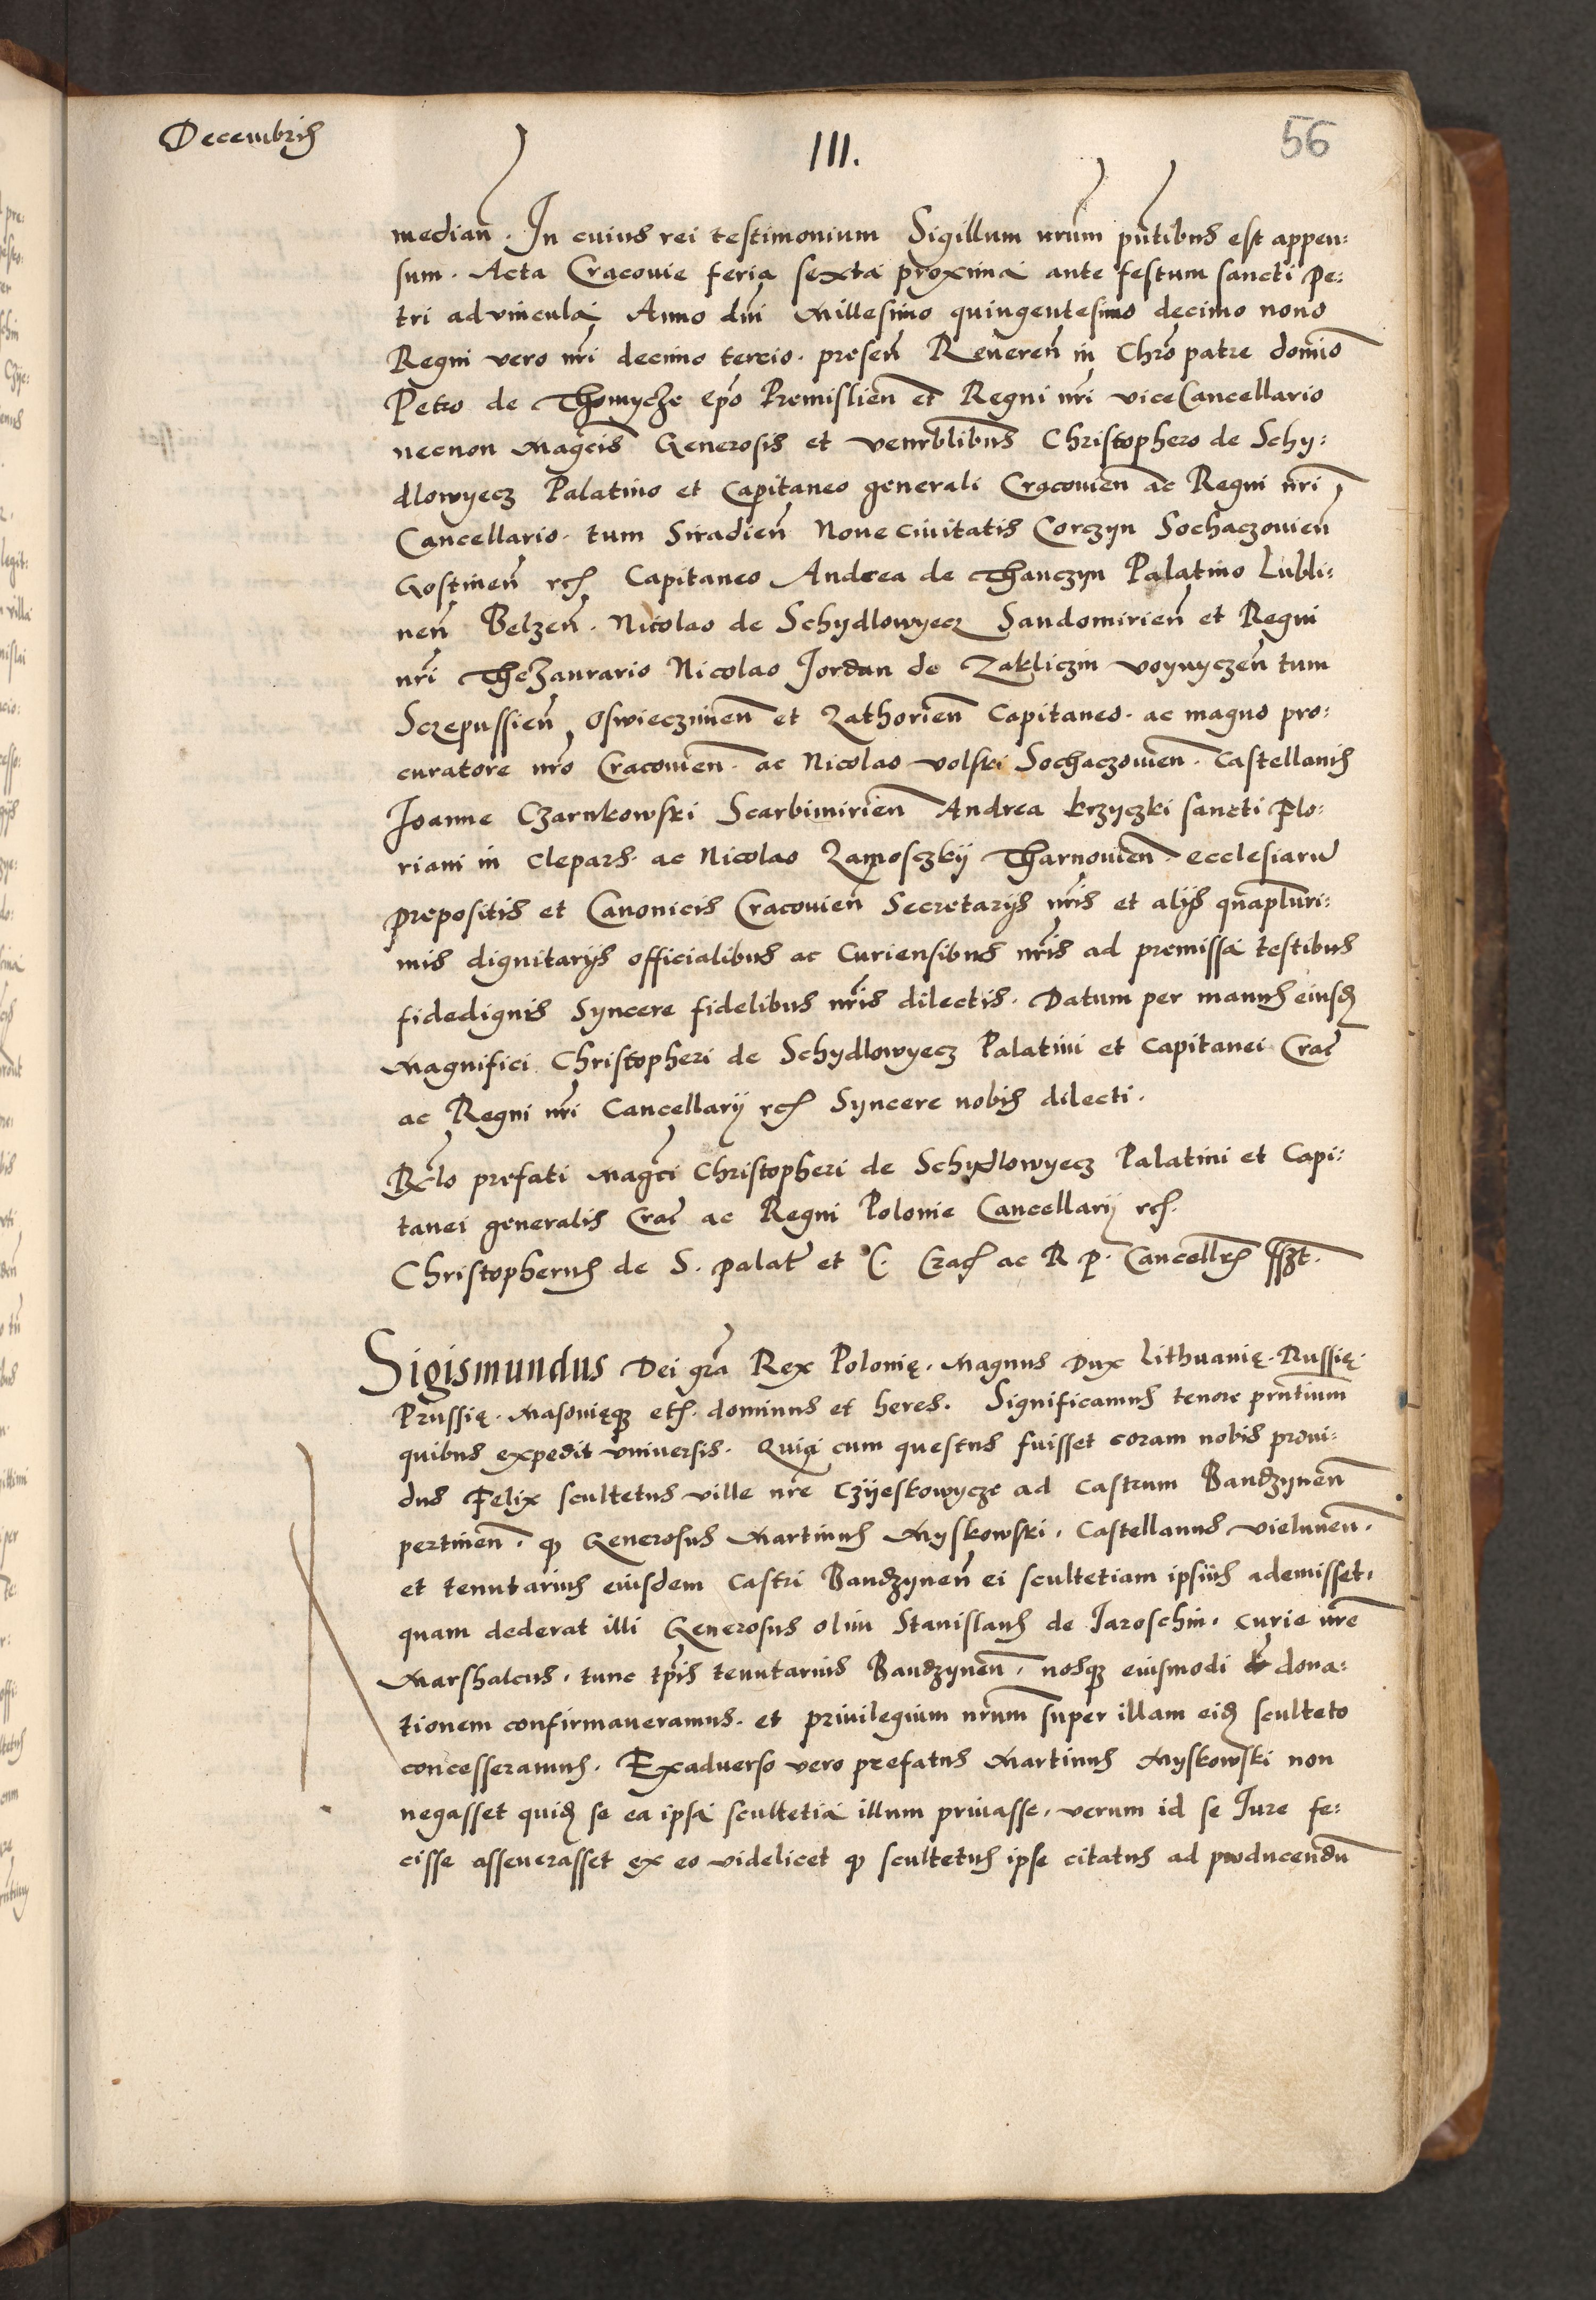 Decembris
III.
56
median̄. In cuius rei testimonium Sigillum nr̄um pn̄tibus est appen:
sum. Acta Cracouie feria sexta proxima ante festum sancti Pe:
tri ad vincula Anno dn̄i Millesimo quingentesimo decimo nono
Regni vero nr̄i decimo tercio. presen̄ Reueren̄ in Chr̄o patre domīo
Petro de Thomycze ep̄o Premislien̄ et Regni nr̄i viceCancellario
necnon Magc̄is Generosis et venerbl̄ibus Christophero de Schy:
dlowyecz Palatino et Capitaneo generali Cracouien̄ ac Regni nr̄i
Cancellario. tum Siradien̄ Noue ciuitatis Corczyn Sochaczouien̄
Gostinen̄ rc̄ Capitaneo Andrea de Thanczyn Palatino Lubli:
nen̄ Belzen̄. Nicolao de Schydlowyecz Sandomirien̄ et Regni
nr̄i Thezaurario Nicolao Jordan de Zakliczin voynyczen̄ tum
Sczepussien̄, Oswieczimen̄ et Zathorien̄ Capitaneo. ac magno pro:
curatore nr̄o Cracouien̄. ac Nicolao volski Sochaczouien̄. Castellanis
Joanne Czarnkowski Scarbimirien̄ Andrea krzyczki sancti Flo:
riani in Clepars. ac Nicolao Zamosczkij Tharnouien̄. ecclesiarū
prepositis et Canonicis Cracouien̄ Secretarijs nr̄is et alijs qn̄apluri:
mis dignitarijs officialibus ac Curiensibus nr̄is ad premissa testibus
fidedignis Syncere fidelibus nr̄is dilectis. Datum per manus eiusd
Magnifici Christopheri de Schydlowyecz Palatini et Capitanei Crac̄
ac Regni nr̄i Cancellarij rc̄ Syncere nobis dilecti.
Rl̄o prefati Magc̄i Christopheri de Schydlowyecz Palatini et Capi:
tanei generalis Crac̄ ac Regni Polonie Cancellarij rc̄.
Christopherus de S. palat̄ et C. Crac̄ ac R P. Cancellr̄s sszt.
Sigismundus Dei gr̄a Rex Polonię. Magnus Dux Lithuanię. Russię.
Prussię. Masouięqꝫ etc̄. dominus et heres. Significamus tenore prn̄tium
quibus expedit vniuersis. Quia cum questus fuisset coram nobis proui:
dus Felix scultetus ville nr̄e Czijeskowycze ad Castrum Bandzynen̄
pertinen̄. qꝫ Generosus Martinus Myskowski. Castellanus vielunen̄.
et tenutarius eiusdem Castri Bandzynen̄ ei scultetiam ipsius ademisset.
quam dederat illi Generosus olim Stanislaus de Jaroschin. curie nr̄e
Marshalcus. tunc tp̄is tenutarius Bandzynen̄. nosqꝫ eiusmodi dona:
tionem confirmaueramus. et priuilegium nr̄um super illam eid sculteto
concesseramus. Exaduerso vero prefatus Martinus Myskowski non
negasset quid se ea ipsa scultetia illum priuasse, verum id se Jure fe:
cisse asseuerasset ex eo videlicet qꝫ scultetus ipse citatus ad producendū